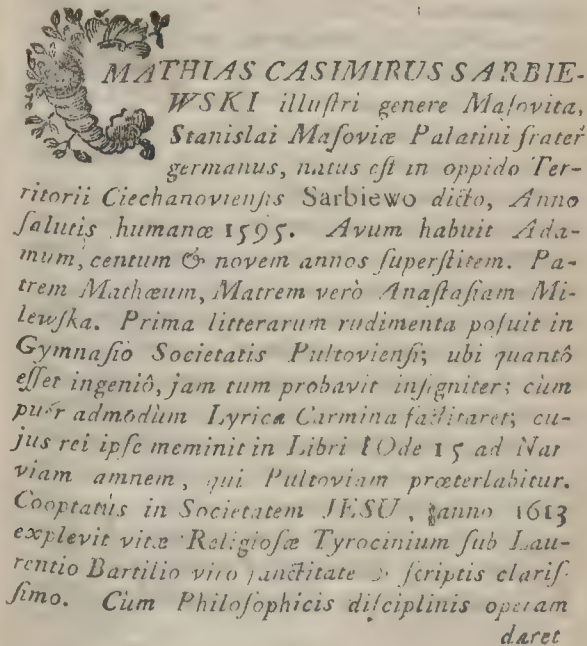 MATHIAS CASIMIRUS SARBIE-
WSKI illuſtri genere Maſovita,
Stanislai Maſoviæ Palatini frater
germanus, natus eſt in oppido Ter-
ritorii Ciechanovienſis Sarbiewo dicto, Anno
ſalutis humanæ 1595. Avum habuit Ada-
mum, centum & novem annos ſuperſtitem. Pa-
trem Mathæum, Matrem verò Anaſtaſiam Mi-
lewſka. Prima litterarum rudimenta poſuit in
Gymnaſio Societatis Pultovienſi; ubi quantô
eſſet ingeniô, jam tum probavit inſigniter; cùm
puér admodùm Lyrica Carmina factitaret; cu-
jus rei ipſe meminit in Libri I Ode 15 ad Nar
viam amnem, qui Pultoviam præterlabitur.
Cooptatus in Societatem JESU, anno 1613
explevit vitæ Religioſæ Tyrocinium ſub Lau-
rentio Bartilio viro ſanctitate & ſcriptis clariſ-
ſimo. Cùm Philoſophicis diſciplinis operam
daret